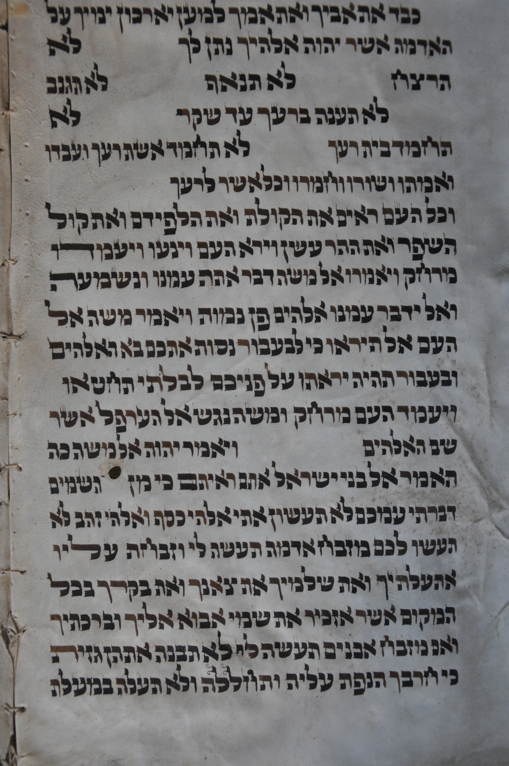 כבד את אביך ואת אמך למען יארכון ימיך על
האדמה אשר יהוה אלהיך נתן לך לא
תרצח לא תנאף לא תגנב
לא תענה ברעך עד שקר לא
תחמד בית רעך לא תחמד אשת רעך ועבדו
ואמתו ושורו וחמרו וכל אשר לרעך
וכל העם ראים את הקולת ואת הלפידם ואת קול
השפר ואת ההר עשן וירא העם וינעו ויעמדו
מרחק ויאמרו אל משה דבר אתה עמנו ונשמעה
ואל ידבר עמנו אלהים פן נמות ויאמר משה אל
העם אל תיראו כי לבעבור נסות אתכם בא האלהים
ובעבור תהיה יראתו על פניכם לבלתי תחטאו
ויעמד העם מרחק ומשה נגש אל הערפל אשר
שם האלהים ויאמר יהוה אל משה כה
תאמר אל בני ישראל אתם ראיתם כי מן השמים
דברתי עמכם לא תעשון אתי אלהי כסף ואלהי זהב לא
תעשו לכם מזבח אדמה תעשה לי וזבחת עליו
את עלתיך ואת שלמיך את צאנך ואת בקרך בכל
המקום אשר אזכיר את שמי אבוא אליך וברכתיך
ואם מזבח אבנים תעשה לי לא תבנה אתהן גזית
כי חרבך הנפת עליה ותחללה ולא תעלה במעלת